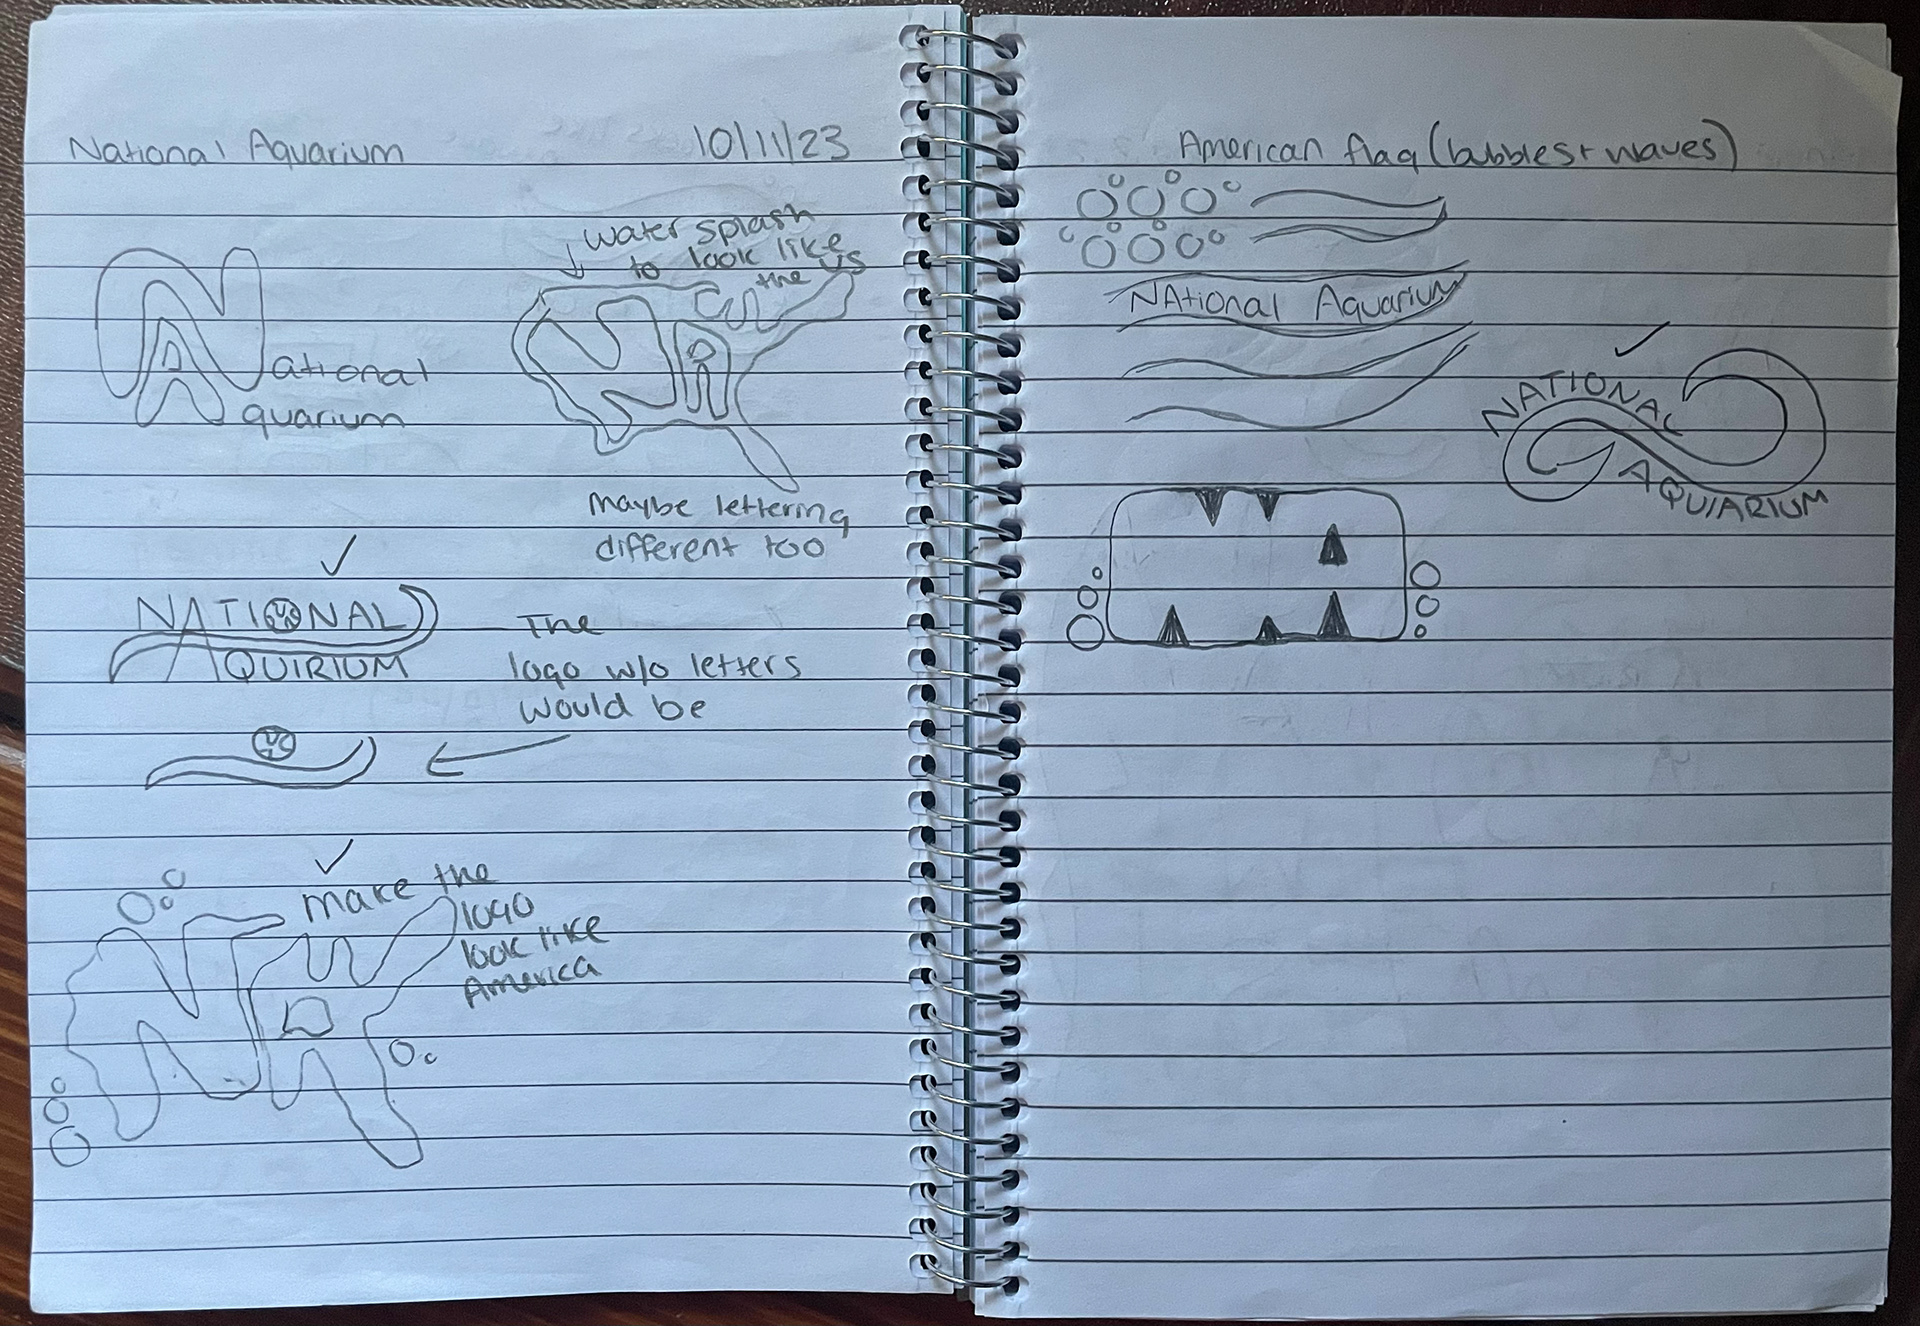 National Aquarium
10/11/23
National
Aquarium
water splash
to look like
the US
NA
Maybe lettering
different too
NATIONAL
AQUIRIUM
The
logo w/o letters
would be
make the
logo
look like
America
NA
American flag (bubbles + waves)
NAtional Aquarium
NATIONAL
AQUIARIUM